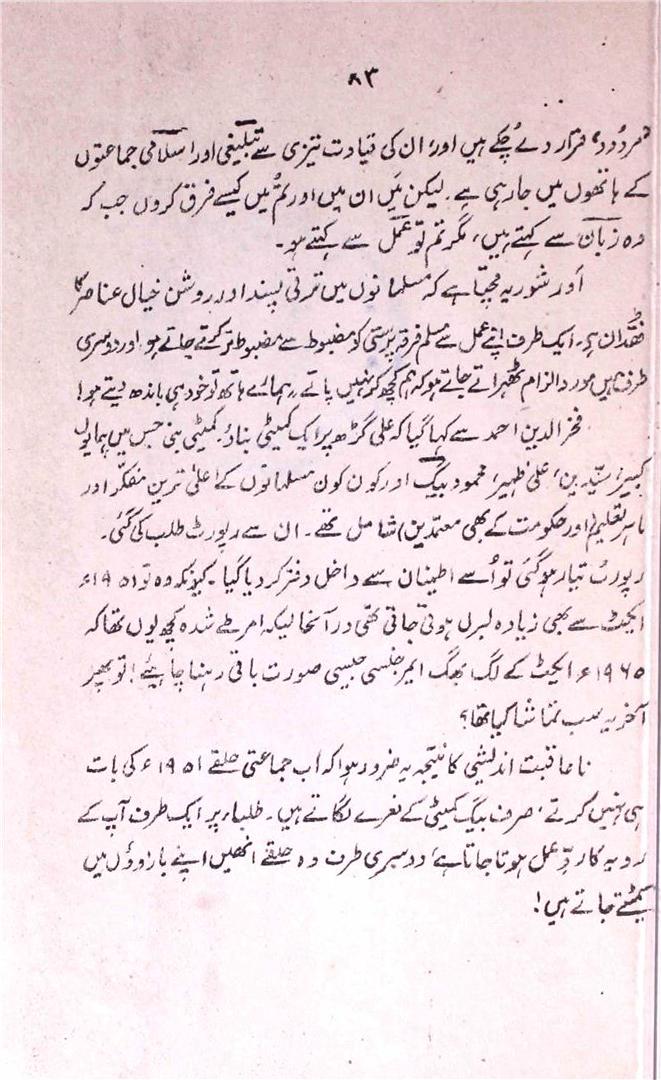 ۸۳
’مردُود‘ قرار دے چُکے ہیں اور ان کی قیادت تیزی سے تبلیغی اور اسلامی جماعتوں
کے ہاتھوں میں جا رہی ہے. لیکن میَں ان میں اور تُم میں کیسے فرق کروں جب کہ
وہ زبان سے کہتے ہیں، مگر تم تو عمل سے کہتے ہو۔
اور شور یہ مچتا ہے کہ مسلمانوں میں ترقی پسند اور روشن خیال عناصر کا
فقدان ہے۔ ایک طرف اپنے عمل سے مسلم فرقہ پرستی کو مضبوط سے مضبوط تر کرتے جاتے ہو اور دوسری
طرف ہمیں مورد الزام ٹھہراتے جاتے ہو کہ ہم کچھ کر نہیں پاتے۔ ہمارے ہاتھ تو خود ہی باندھ دیتے ہو!
فخرالدین احمد سے کہا گیا کہ علی گڑھ پر ایک کمیٹی بناؤ۔ کمیٹی بنی جس میں ہمایوں
کبیر، سیّدین، علی ظہیر، محمود بیگ اور کون کون مسلمانوں کے اعلیٰ ترین مفکّر اور
ماہر تعلیم (اور حکومت کے بھی معتمدین) شامل تھے۔ ان سے رپورٹ طلب کی گئی۔
رپورٹ تیار ہو گئی تو اُسے اطینان سے داخل دفتر کر دیا گیا۔ کیونکہ وہ تو ۱۹۵۱ء
ایکٹ سے بھی زیادہ لبرل ہوئی جاتی تھی درآنحالیکہ امر طے شدہ کچھ یوں تھا کہ
۱۹۶۵ء ایکٹ کے لگ بھگ ایمرجنسی جیسی صورت باقی رہنا چاہیئے! تو پھر
آخر یہ سب تماشا کیا تھا؟
ناعاقبت اندیشی کا نتیجہ یہ ضرور ہوا کہ اب جماعتی حلقے ۱۹۵۱ء کی بات
ہی نہیں کرتے، صرف بیگ کمیٹی کے نعرے لگاتے ہیں۔ طلباء پر ایک طرف آپ کے
رویہ کا ردِّ عمل ہوتا جاتا ہے، دوسری طرف وہ حلقے انھیں اپنے بازوؤں میں
سمیٹتے جاتے ہیں!